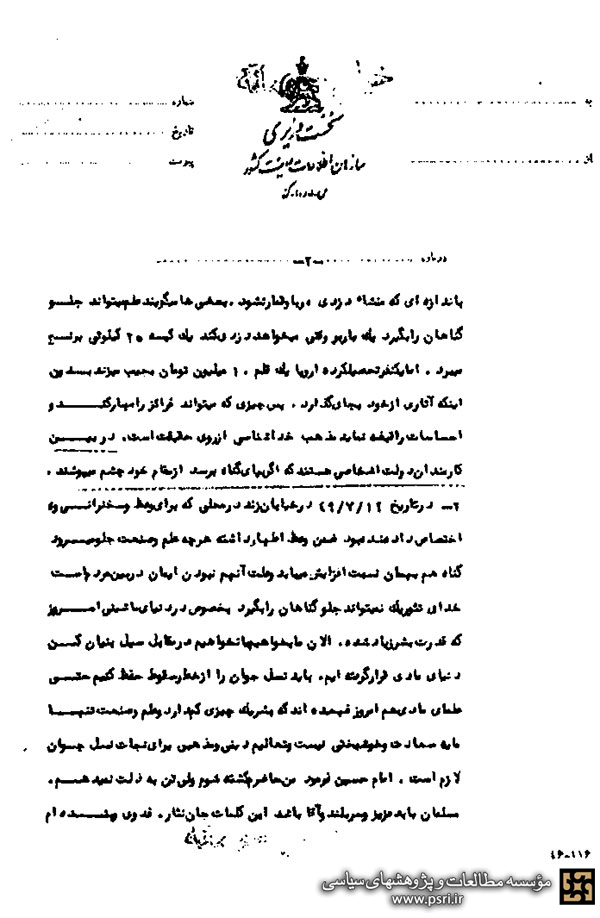 به
شماره
تاریخ
از
پیوست
نخست وزیری
سازمان اطلاعات و امنیت کشور
درباره
-۲-
باندازه ای که منشاء دزدی دریا و قمار نشود. بعضی ها میگویند علم میتواند جلو
گناهان را بگیرد یک باربر وقتی میخواهد دزدی کند یک کیسه ۲۰ کیلوئی برنج
میبرد. اما یکنفر تحصیلکرده اروپا یک قلم ۱۰ میلیون تومان بجیب میزند بدون
اینکه آثاری از خود بجای گذارد. پس چیزی که میتواند غرائز را مهار کند و
احساسات را قبضه نماید مذهب خداشناسی از روی حقیقت است. در بین
کارمندان دولت اشخاصی هستند که اگر پای گناه برسد از مقام خود چشم میپوشند.
۲- در تاریخ ۴۹/۷/۱۲ در خیابان زند در محلی که برای وعظ و سخنرانی وی
اختصاص داده شده بود ضمن وعظ اظهار داشته هر چه علم و صنعت جلو میرود
گناه هم بهمان نسبت افزایش مییابد و علت آنهم نبودن ایمان در بین مردم است
خدای تئوریک نمیتواند جلو گناهان را بگیرد بخصوص در دنیای ماشینی امروز
که قدرت بشر زیاد شده. الان ما بخواهیم یا نخواهیم در مقابل سیل بنیان کن
دنیای مادی قرار گرفته ایم. باید نسل جوان را از خطر سقوط حفظ کنیم حتی
علمای مادی هم امروز فهمیده اند که بشر یک چیزی کم دارد و علم و صنعت تنها
مایه سعادت و خوشبختی نیست و تعالیم دینی و مذهبی برای نجات نسل جوان
لازم است. امام حسین فرمود من حاضرم کشته شوم ولی تن به ذلت نمیدهم.
مسلمان باید عزیز و سربلند و آقا باشد این کلمات جان نثار. فدوی بنده ام
۴۶-۱۱۶
مؤسسه مطالعات و پژوهشهای سیاسی
www.psri.ir